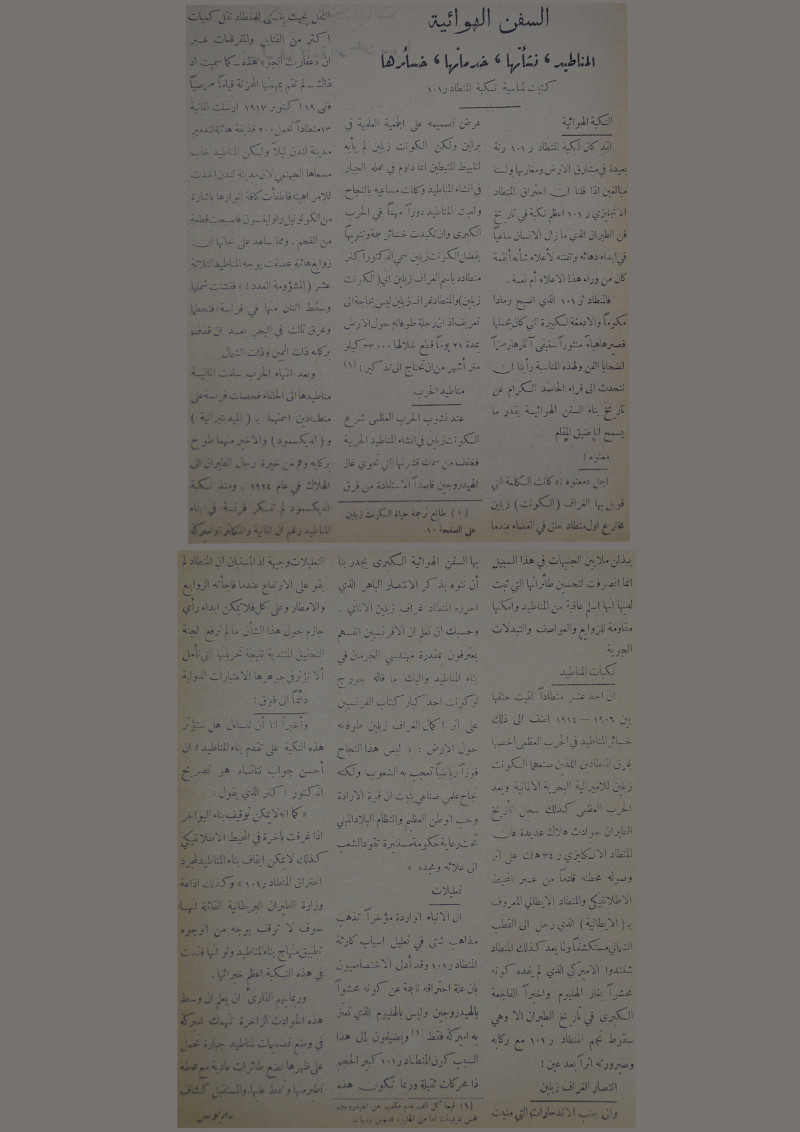 السفن الهوائية
المناطيد، نشأتها، خدماتها، خسائرها
كتبت لمناسبة نكبة المنطاد ر ١٠١
النكبة الهوائية
لقد كان لنكبة المنطاد ر ١٠١ رنة
بعيدة في مشارق الارض ومغاربها ولسنا
مبالغين اذا قلنا ان احتراق المنطاد
الانجليزي ر ١٠١ اعظم نكبة في تاريخ
فن الطيران الذي ما زال الانسان ساعياً
في ابداء دهائه وتفننه لأعلاء شأنه أنقمة
كان من وراء هذا الاعلاء أم نعمة .
فالمنطاد ر ١٠١ الذي اصبح رمادا
مكوماً والادمغة الكبيرة التي كان يحملها
فصيرها هباءً منثوراً ستبقى آثارها رمزاً
لضحايا الفن ولهذه المناسبة رأينا ان
نتحدث الى قراء الحاصد الكرام عن
تاريخ بناء السفن الهوائية بقدر ما
يسمح لنا ضيق المقام
معتوه !
اجل «معتوه :» كانت الكلمة التي
قوبل بها الغراف (الكونت) زبلين
مخترع اول منطاد حلق في الفضاء عندما
عرض تصميمه على الجمعية العلمية في
برلين ولكن الكونت زبلين لم يأبه
لتثبيط المثبطين انما داوم في عمله الجبار
في انشاء المناطيد وكللت مساعيه بالنجاح
ولعبت المناطيد دوراً مهماً في الحرب
الكبرى وان تكبدت خسائر جمة وتنويهاً
بفضل الكونت زبلين سمي الدكتور اكنر
منطاده باسم الغراف زبلين اي (الكونت
زبلين) والمنطاد غراف زبلين ليس بحاجة الى
تعريف اذ ان رحلة طوفانه حول الارض
بمدة ٢١ يوماً قطع خلالها ٣٣٠٠٠ كيلو
متر أشهر من ان تحتاج الى تذكير : (١)
مناطيد الحرب
عند نشوب الحرب العظمى شرع
الكونت زبلين في انشاء المناطيد الحربية
فخفف من سمك قشرتها التي تحوي غاز
الهيدروجين قاصداً الاستفادة من فرق
(١) طالع ترجمة حياة الكونت زبلين
على الصفحة ١٠
الثقل بحيث يتسنى للمنطاد نقل كميات
اكثر من القنابل والمفرقعات غير
ان «عفاريت الجو» هذه — كما سميت اذ
ذاك — لم تقم بمهمتها المحزنة قياماً مرضياً
ففي ١٩ اكتوبر ١٩١٧ ارسلت المانية
١٣ منطاداً تحمل ٢٠٠ قذيفة هائلة لتدمير
مدينة لندن ليلاً ولكن المناطيد خاب
مسعاها الجهنمي لان مدينة لندن اخذت
للامر اهبته فاطفأت كافة انوارها باشارة
من الكولونيل راولينسون فاصبحت قطعة
من الفحم . ومما ساعد على نجاتها ان
زوابع هائلة عصفت بوجه المناطيد الثلاثة
عشر (المشؤومة العدد :) فشتتت شملها
وسقط اثنان منها في فرنسة فتحطما
وغرق ثالث في البحر بعد ان قذف
بركابه ذات اليمين وذات الشمال
وبعد انتهاء الحرب سلمت المانية
مناطيدها الى الحلفاء فخصت فرنسة على
منطادين اسمتهما بـ (الميديتيرانية)
و (الديكسمود) والاخير منهما طوح
بركابه وهم من خيرة رجال الطيران الى
الهلاك في عام ١٩٢٤ . ومنذ نكبة
الديكسمود لم تفكر فرنسة في بناء
المناطيد رغم ان المانية وانكلترة وامركة
يبذلن ملايين الجنيهات في هذا السبيل
انما انصرفت لتحسين طائراتها التي ثبتت
لديها انها اسلم عاقبة من المناطيد وامكنها
مقاومة للزوابع والعواصف والتبدلات
الجوية
نكبات المناطيد
ان احد عشر منطاداً لقيت حتفها
بين ١٩٠٦ — ١٩١٤ اضف الى ذلك
خسائر المناطيد في الحرب العظمى اخصها
غرق المنطادين اللذين صنعهما الكونت
زبلين للاميرالية البحرية الالمانية وبعد
الحرب العظمى كذلك سجل تاريخ
الطيران حوادث هلاك عديدة فان
المنطاد الانكليزي ر ٣٤ هلك على اثر
وصوله محطته قادماً من عبر المحيط
الاطلانتيكي والمنطاد الايطالي المعروف
بـ (الايطالية) الذي رحل الى القطب
الشمالي مستكشفاً ولما يعد كذلك المنطاد
شنندوا الاميركي الذي لم يفده كونه
محشواً بغاز الهليوم واخيراً الفاجعة
الكبرى في تاريخ الطيران الا وهي
سقوط نجم المنطاد ر ١٠١ مع ركابه
وصيرورته اثراً بعد عين !
انتصار الغراف زبلين
والى جنب الاندحارات التي منيت
بها السفن الهوائية الكبرى يجدر بنا
أن ننوه بذكر الانتصار الباهر الذي
احرزه المنطاد غراف زبلين الالماني .
وحسبك ان تعلم ان الافرنسيين انفسهم
يعترفون بمقدرة مهندسي الجرمان في
بناء المناطيد واليك ما قاله جورج
لوكونت احد كبار كتاب الفرنسيين
على اثر اكمال الغراف زبلين طوفانه
حول الارض : « ليس هذا النجاح
فوزاً رياضياً تعجب به الشعوب ولكنه
نجاح علمي صناعي يثبت ان قوة الارادة
وحب الوطن العظيم وانتظام البلاد المبني
تحت رعاية حكومة مستنيرة تقود الشعب
الى علائه ومجده »
تعليلات
ان الانباء الواردة مؤخراً تذهب
مذاهب شتى في تعليل اسباب كارثة
المنطاد ر ١٠١ وقد أدلى الاختصاصيون
بان علة احتراقه ناجمة عن كونه محشواً
بالهيدروجين وليس بالهليوم الذي تعتز
به اميركة فقط (١) ويضيفون الى هذا
السبب كون المنطاد ر ١٠١ كبير الحجم
ذا محركات ثقيلة وربما تكون هذه
(١) قيمة كل الف قدم مكعب من الهيدروجين
التعليلات وجيهة اذ المستبان ان المنطاد لم
يقو على الارتفاع عندما فاجأته الزوابع
والامطار وعلى كل فلا يمكن ابداء رأي
جازم حول هذا الشأن ما لم ترفع لجنة
التحقيق المنتدبة نتيجة تحرياتها التي نأمل
ألا تؤثر في جوهرها الاعتبارات الدولية
دائماً الى فرق :
وأخيراً لنا أن نتساءل هل ستؤثر
هذه النكبة على تقدم بناء المناطيد ؟ ان
أحسن جواب نتلقاه هو تصريح
الدكتور اكنر الذي يقول :
« كما انه لا يمكن توقيف بناء البواخر
اذا غرقت باخرة في المحيط الاطلانتيكي
كذلك لا يمكن ايقاف بناء المناطيد لمجرد
احتراق المنطاد ر ١٠١ » وكذلك اذاعة
وزارة الطيران البريطانية القائلة انها
سوف لا توقف بوجه من الوجوه
تطبيق منهاج بناء المناطيد ولو انها فقدت
في هذه النكبة اعظم خبرائها .
وربما يهم القارئ ان يعلم ان وسط
هذه الحوادث الزاخرة تنهمك اميركة
في وضع تصميمات لمناطيد جبارة تحمل
على ظهرها بضع طائرات عادية مع محطة
تطير منها وتحط عليها. والمستقبل كشاف